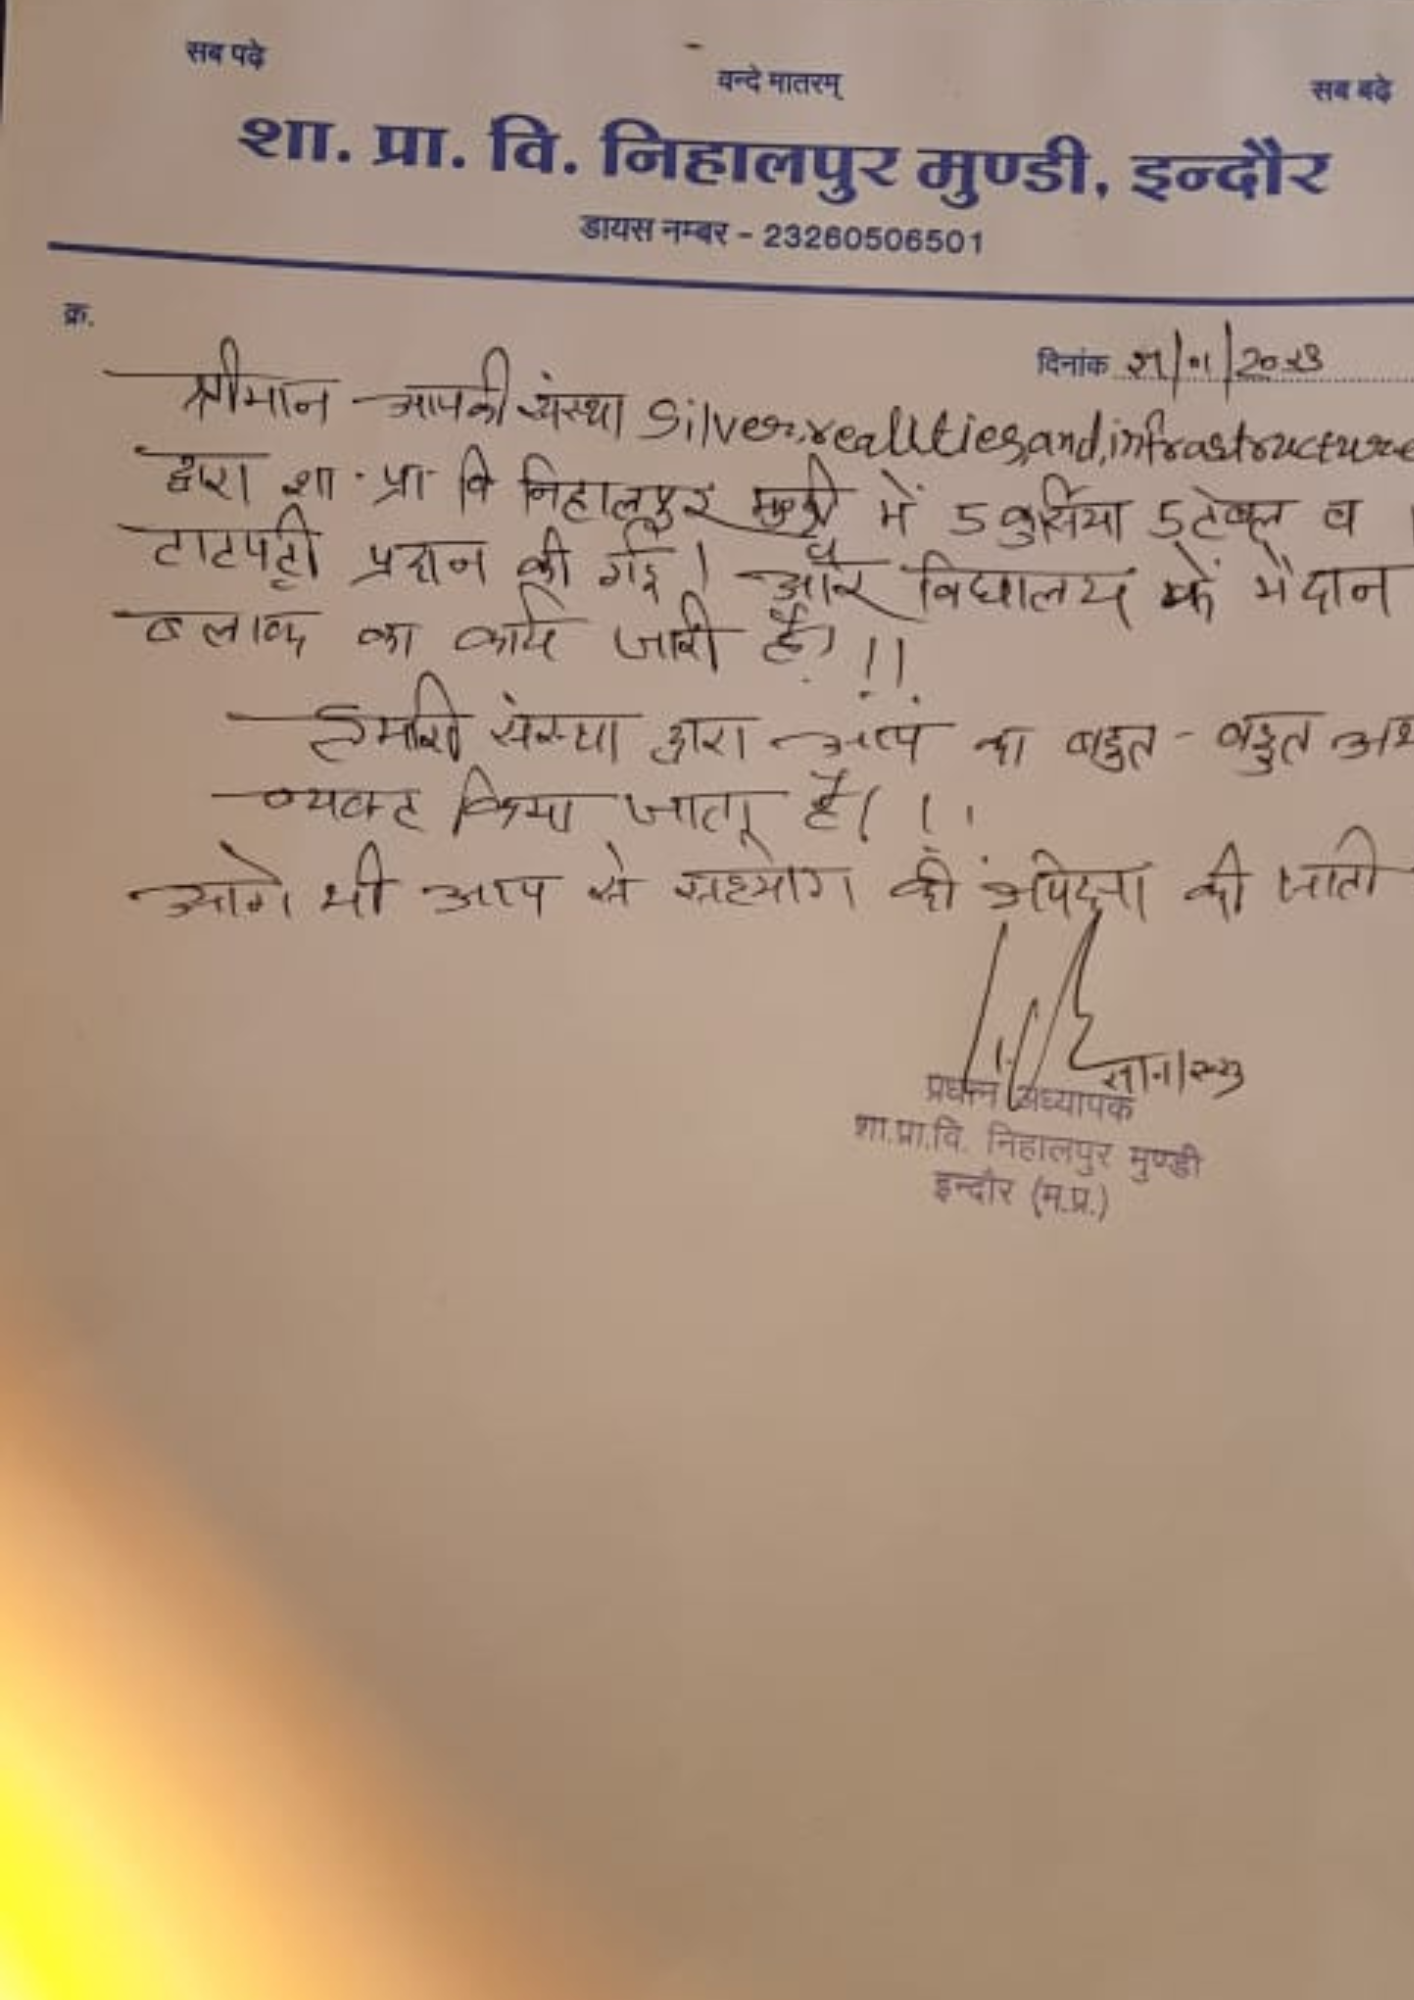 सब पढ़े
वन्दे मातरम्
सब बढ़े
शा. प्रा. वि. निहालपुर मुण्डी, इन्दौर
डायस नम्बर - 23260506501
क्र.
दिनांक /01/2023
श्रीमान आपकी संस्था Silver, realities, and, infrastructure
द्वारा शा. प्रा. वि निहालपुर मुण्डी में 5 कुर्सिया 5 टेबल व
टाटपट्टी प्रदान की गई। और विद्यालय के मैदान
ब्लाक का कार्य जारी है। !!
हमारी संस्था द्वारा आप का बहुत - बहुत
व्यक्त किया जाता है। !!
आगे भी आप से सहयोग की अपेक्षा की जाती
प्रधान अध्यापक
शा.प्रा.वि. निहालपुर मुण्डी
इन्दौर (म.प्र.)